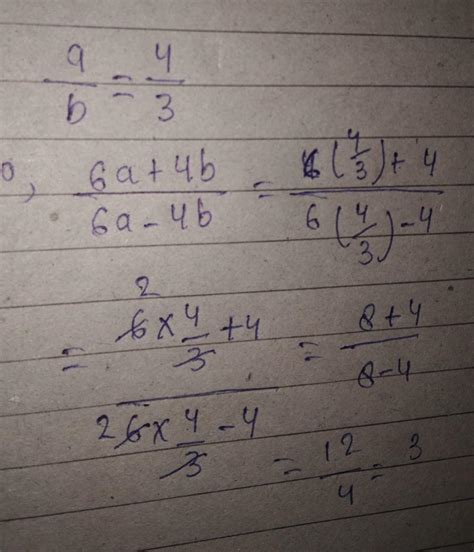 a/b = 4/3
0, (6a+4b)/(6a-4b) = (6(4/3)+4)/(6(4/3)-4)
= (2 6×4/3+4)/(2 6×4/3-4) = (8+4)/(8-4)
= 12/4 = 3